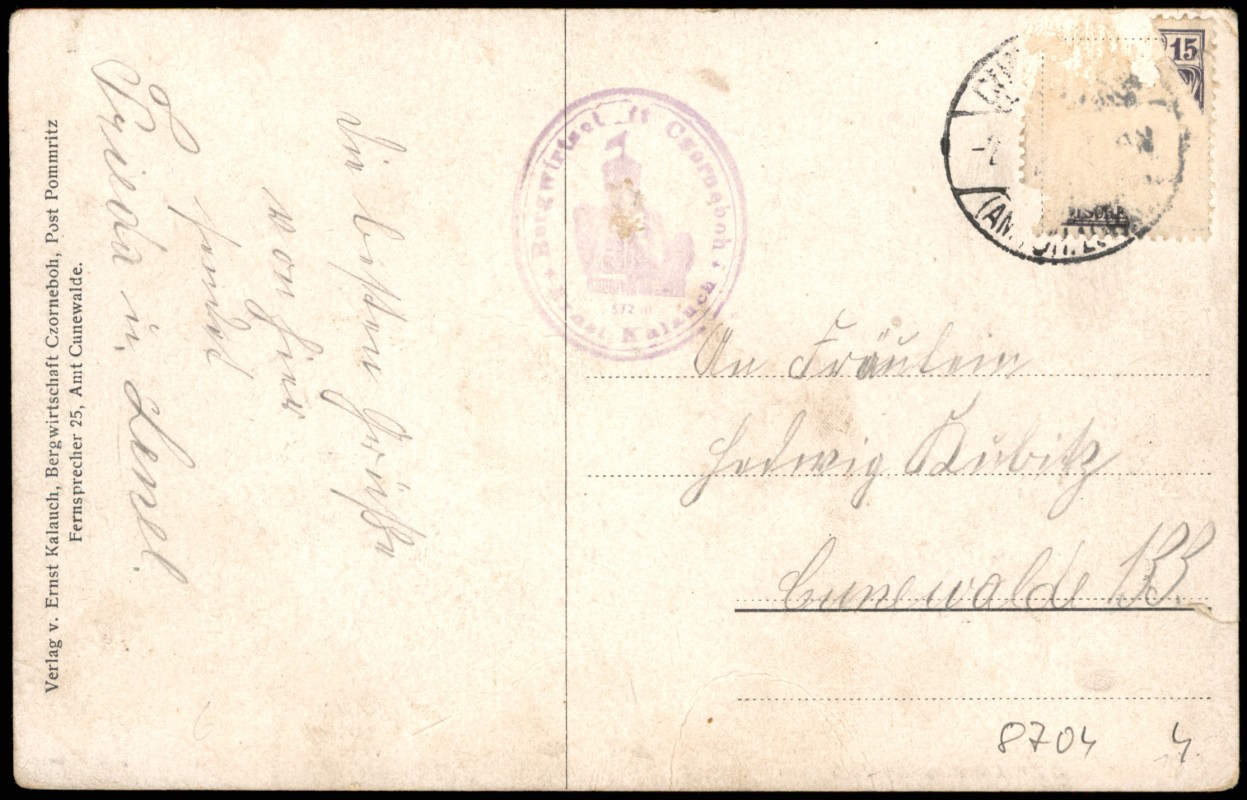 Verlag v. Ernst Kalauch, Bergwirtschaft Czorneboh, Post Pommritz
Fernsprecher 25, Amt Cunewalde.
Die besten Grüße
von hier
sendet
Frieda u.
Bergwirtschaft Czorneboh
Ernst Kalauch
572 m
15
An Fräulein
Hedwig Kubitz
Cunewalde 133.
8704 4.